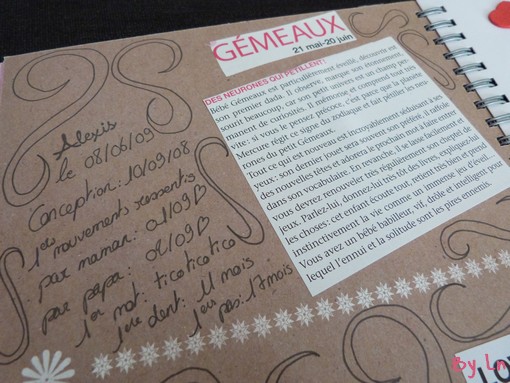 GÉMEAUX
21 mai-20 juin
DES NEURONES QUI PÉTILLENT !
Bébé Gémeaux est particulièrement éveillé, découvrir est
son premier dada. Il observe, manque son étonnement,
sourit beaucoup, car son petit univers est un champ per-
manent de curiosités. Il mémorise et comprend tout très
vite : si vous le pensez précoce, c'est parce que la planète
Mercure régit ce signe du zodiaque et fait pétiller les neu-
rones du petit Gémeaux.
Tout ce qui est nouveau est incroyablement séduisant à ses
yeux : son dernier jouet sera souvent son préféré, il raffole
des nouvelles têtes et adorera le prochain mot à faire entrer
dans son vocabulaire. En revanche, il se lasse facilement et
vous devrez renouveler très régulièrement son cheptel de
jeux. Parlez-lui, donnez-lui très tôt des livres, expliquez-lui
les choses : cet enfant écoute tout, retient très bien et prend
instinctivement la vie comme un immense jeu d'éveil.
Vous avez un bébé babilleur, vif, drôle et intelligent pour
lequel l'ennui et la solitude sont les pires ennemis.
Alexis
le 08/06/09
Conception : 10/09/08
1ers mouvements ressentis
par maman : 01/09
par papa : 02/09
1er mot : ticoticotico
1ère dent : 11 mois
1ers pas : 17 mois
By Ln